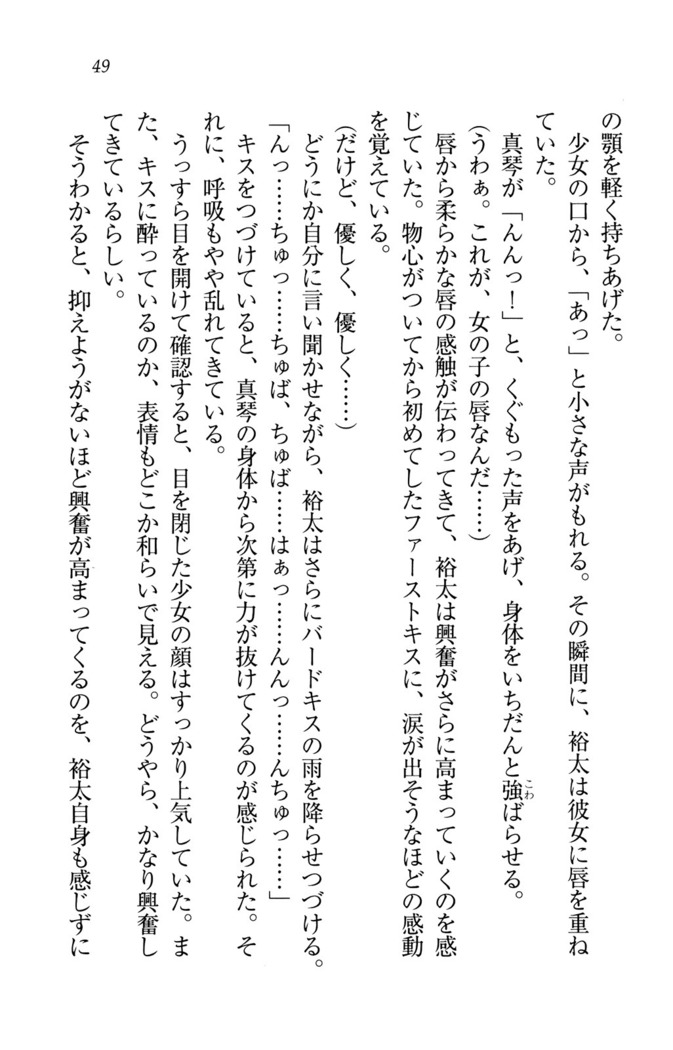 49
の顎を軽く持ちあげた。
少女の口から、「あっ」と小さな声がもれる。その瞬間に、裕太は彼女に唇を重ね
ていた。
真琴が「んんっ！」と、くぐもった声をあげ、身体をいちだんと強こわばらせる。
(うわぁ。これが、女の子の唇なんだ……)
唇から柔らかな唇の感触が伝わってきて、裕太は興奮がさらに高まっていくのを感
じていた。物心がついてから初めてしたファーストキスに、涙が出そうなほどの感動
を覚えている。
(だけど、優しく、優しく……)
どうにか自分に言い聞かせながら、裕太はさらにバードキスの雨を降らせつづける。
「んっ……ちゅっ……ちゅば、ちゅば……はぁっ……んんっ……んちゅっ……」
キスをつづけていると、真琴の身体から次第に力が抜けてくるのが感じられた。そ
れに、呼吸もやや乱れてきている。
うっすら目を開けて確認すると、目を閉じた少女の顔はすっかり上気していた。ま
た、キスに酔っているのか、表情もどこか和らいで見える。どうやら、かなり興奮し
てきているらしい。
そうわかると、抑えようがないほど興奮が高まってくるのを、裕太自身も感じずに